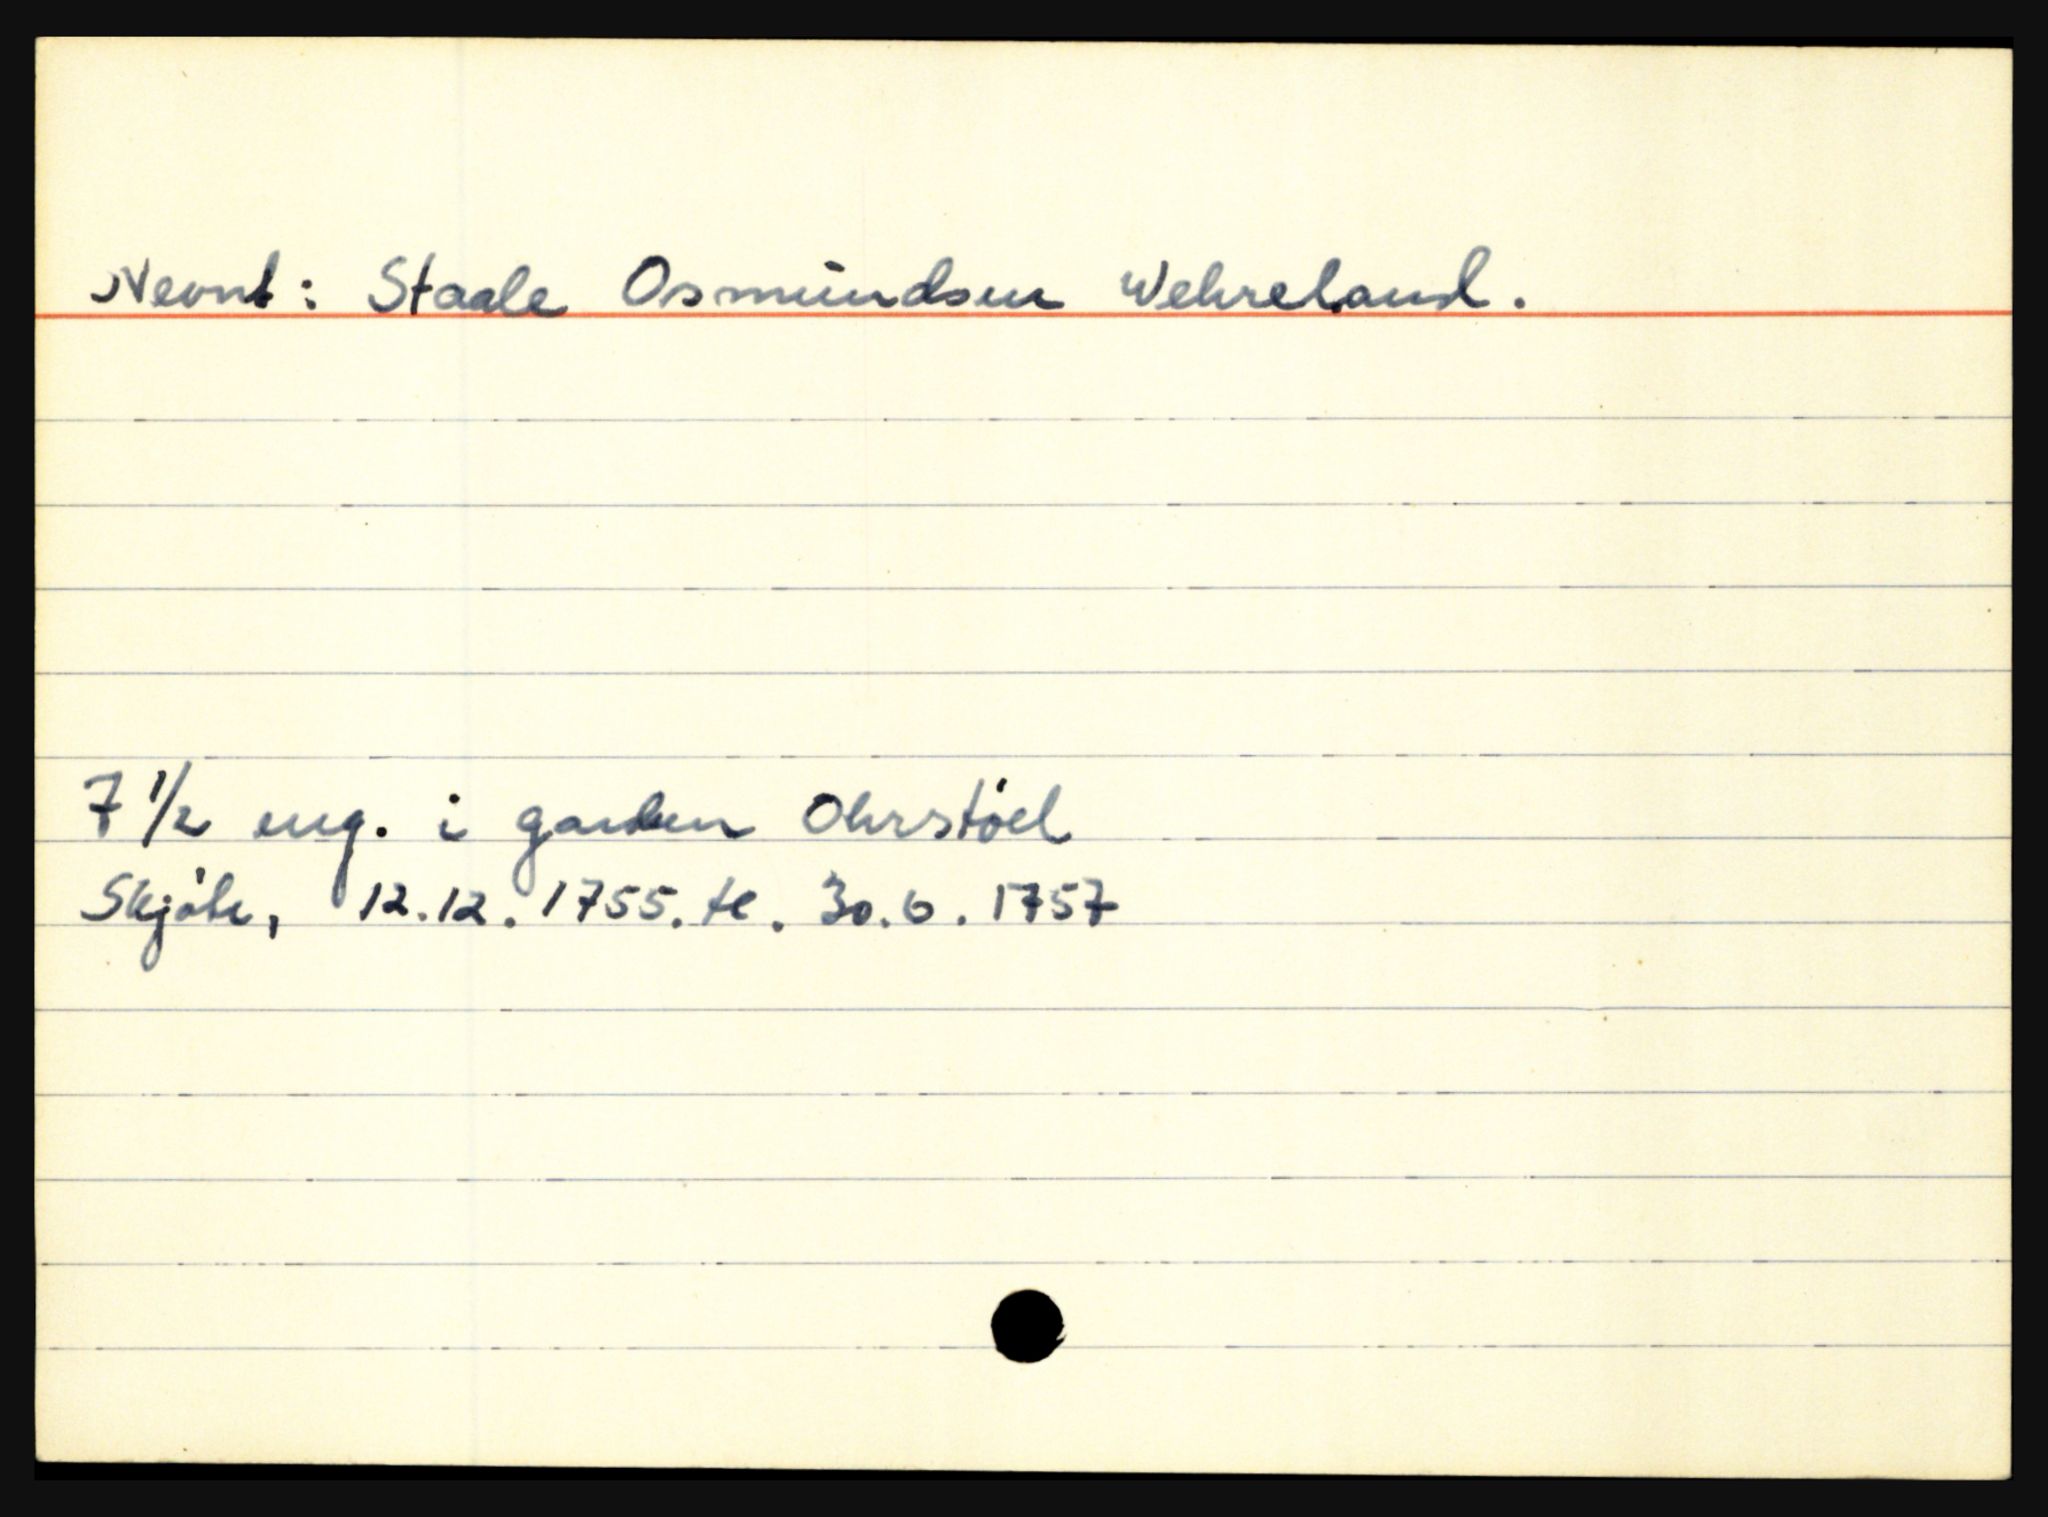 Nevnt: Staale Osmundsen Wehreland.
7 1/2 eng. i garden Ohrstöel
Skjöte, 12.12.1755. tl. 30.6.1757